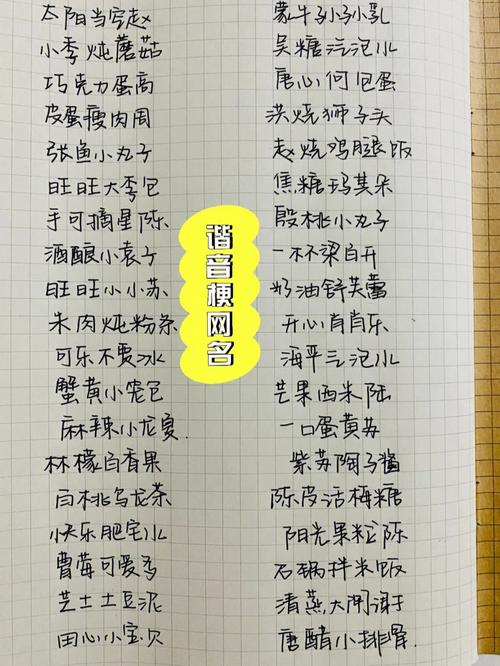 太阳当空赵
小季炖蘑菇
巧克力蛋高
皮蛋瘦肉周
张鱼小丸子
旺旺大季包
手可摘星陈
酒酿小袁子
旺旺小小苏
朱肉炖粉条
可乐不贾冰
蟹黄小笼包
麻辣小龙夏
林檬白香果
白桃乌龙茶
快乐肥宅水
曹莓可爱多
芝士土豆泥
田心小宝贝
蒙牛孙小乳
吴糖汽泡水
唐心何包蛋
洪烧狮子头
赵烧鸡腿饭
焦糖玛其朵
殷桃小丸子
一杯梁白开
奶油舒芙蕾
开心肖肖乐
海平气泡水
芒果西米陆
一口蛋黄苏
紫苏陶子酱
陈皮话梅糖
阳光果粒陈
石锅拌米饭
清蒸大闸谢
唐醋小排骨
谐音梗网名